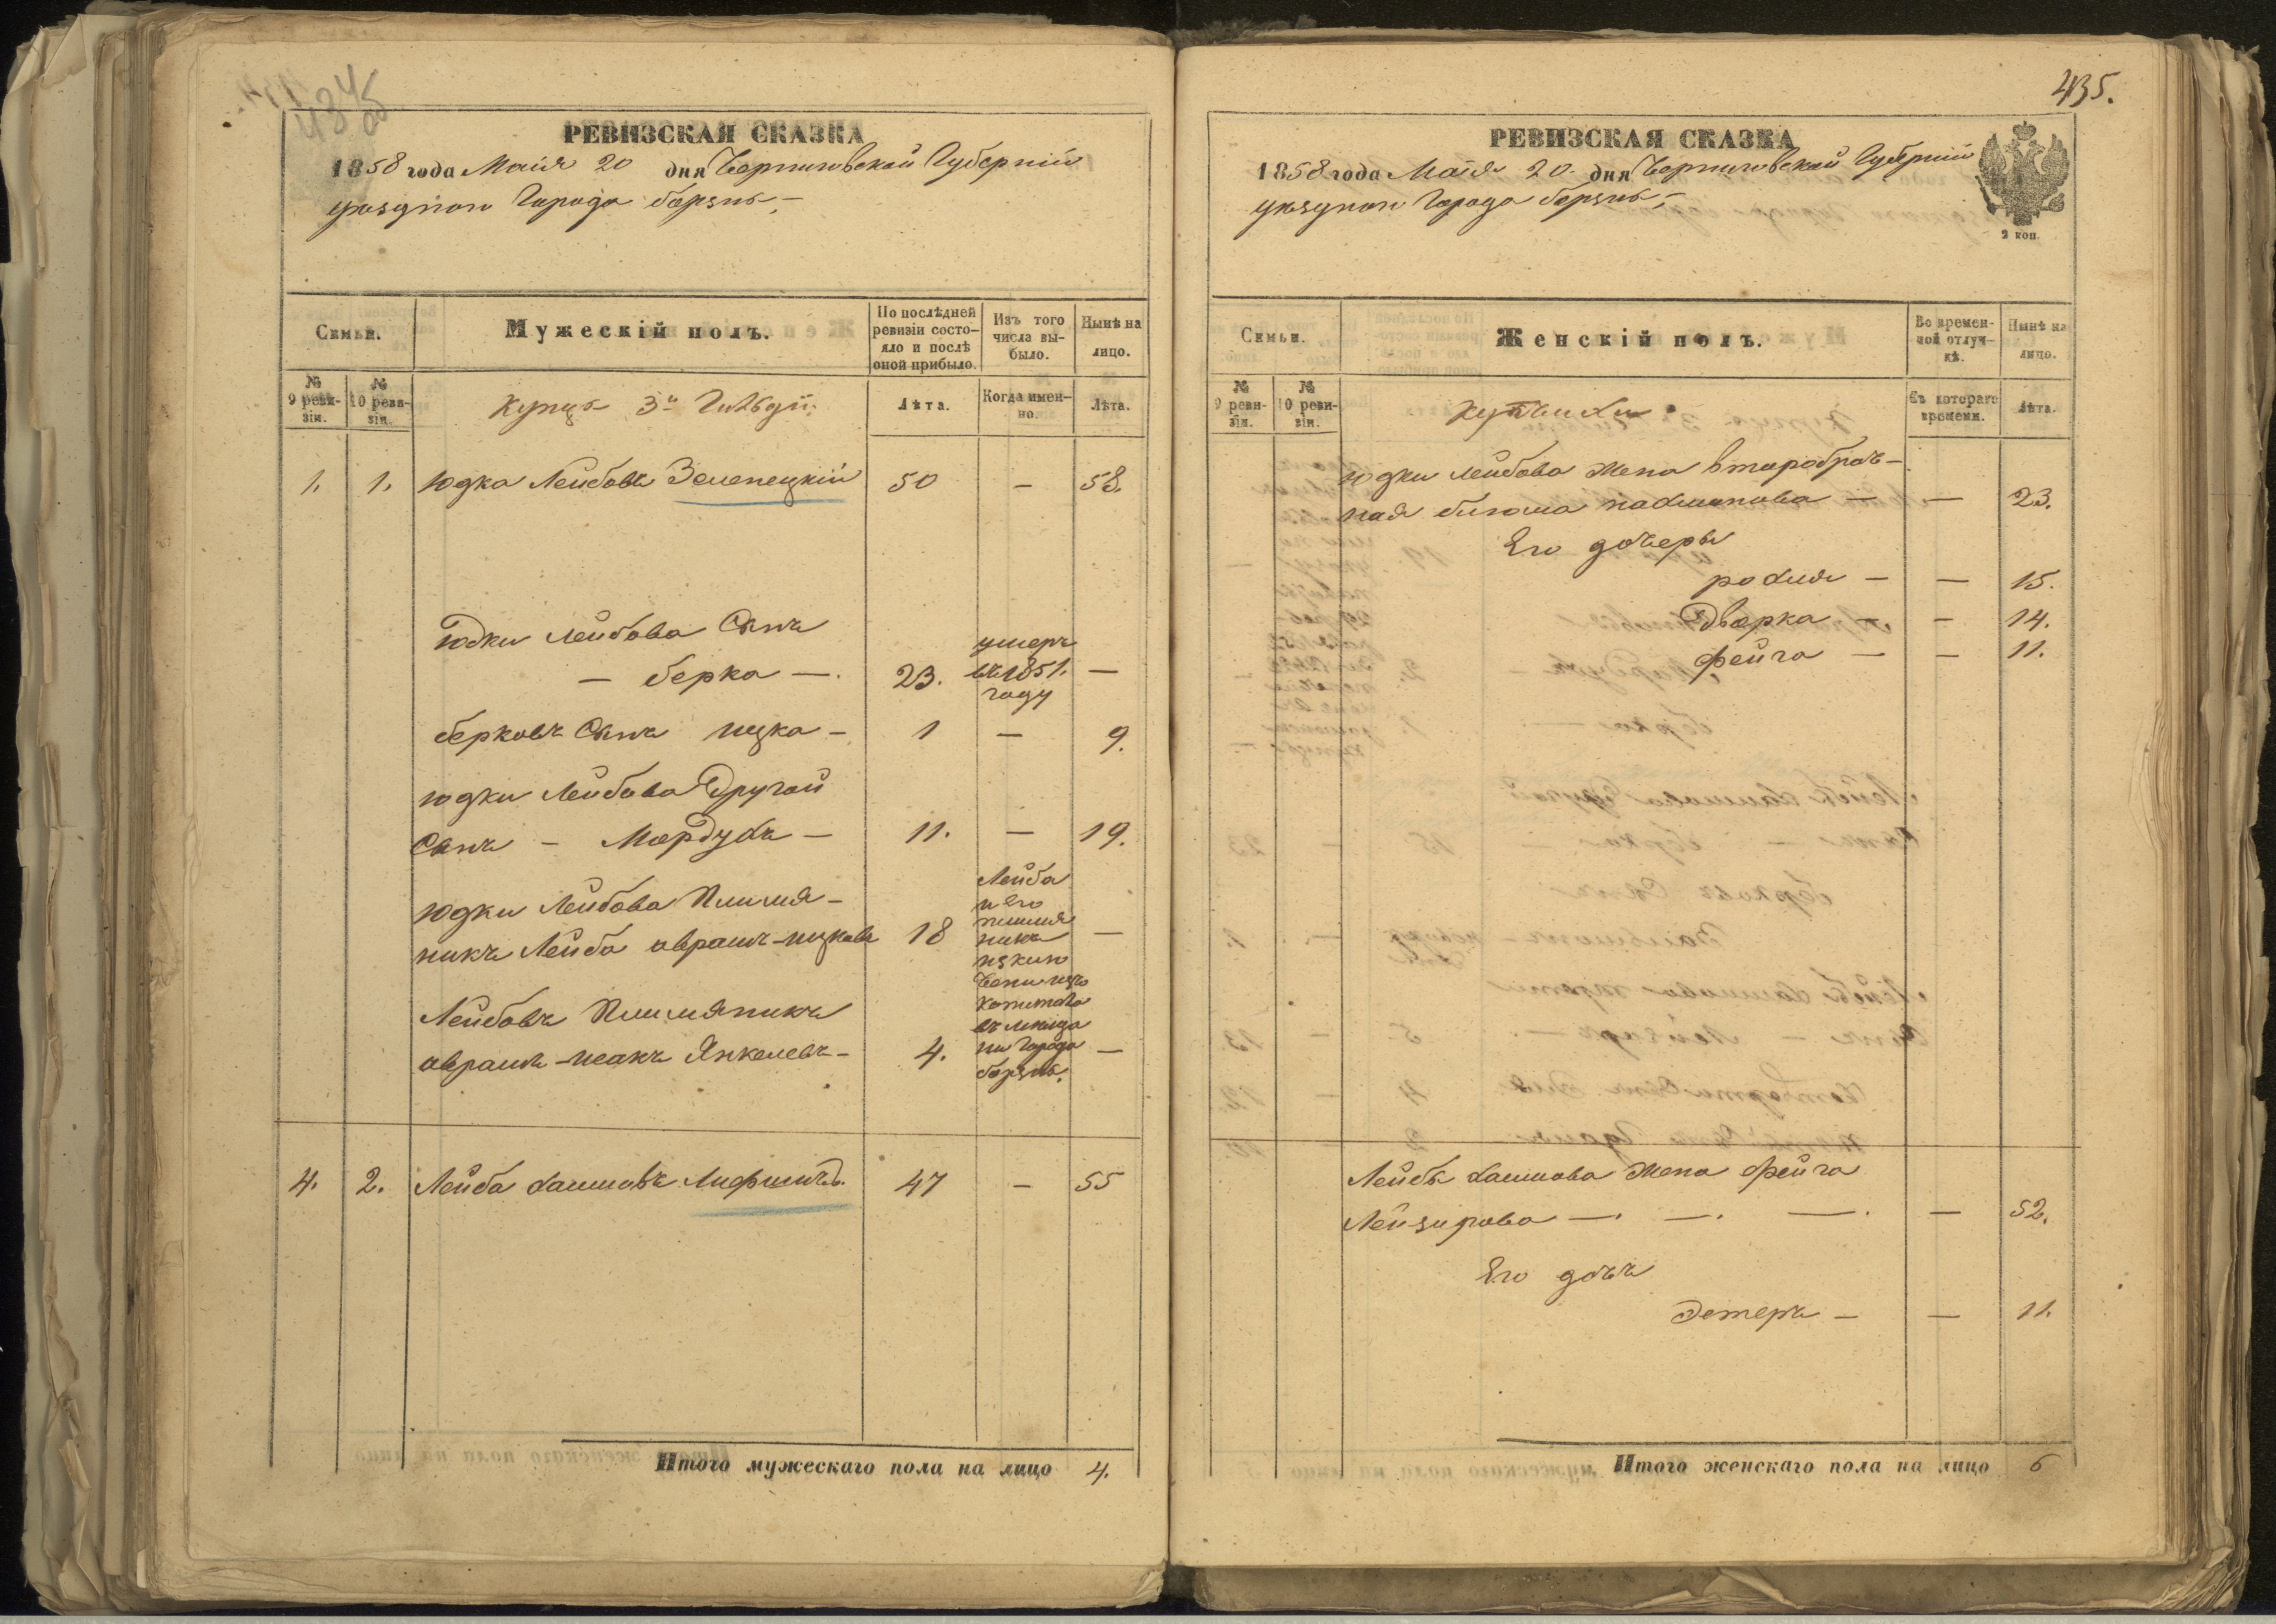 434
об
РЕВИЗСКАЯ СКАЗКА
1858 года Маія 20 дня Черниговской Губерніи
уѣзднаго Города борзны,—
Семьи.
Мужескій полъ.
По послѣдней
ревизіи состо-
яло и послѣ
оной прибыло.
Изъ того
числа вы-
было.
Нынѣ на
лицо.
№
9 реви-
зіи.
№
10 реви-
зіи.
Купцы 3й Гильдіи.
Лѣта.
Когда имен-
но.
Лѣта.
1. 1. Юдка Лейбовъ Зеленецкій 50 — 58.
Юдки Лейбова Сынъ
— берка —. 23. умеръ въ 1851. году —
берковъ Сынъ ицка — 1 — 9.
Юдки Лейбова Другой
Сынъ — Мордухъ — 11. — 19.
Юдки Лейбова Племя-
никъ Лейба аврамъ-ицковъ 18 —
Лейбовъ Племяникъ
аврамъ-исакъ Янкелевъ — 4. —
Лейба
и его
племя
никъ
изклю
чены изъ
капитала
въ мѣща
не Города
борзны.
4. 2. Лейба хаимовъ Лифшицъ. 47 — 55
Итого мужескаго пола на лицо 4.
435.
РЕВИЗСКАЯ СКАЗКА
1858 года Маія 20. дня Черниговской Губерніи
уѣзднаго Города борзны,—
2 коп.
Семьи.
Женскій полъ.
Во времен-
ной отлуч-
кѣ.
Нынѣ на
лицо.
№
9 реви-
зіи.
№
10 реви-
зіи.
Купчихи
Съ котораго
времени.
Лѣта.
Юдки Лейбова Жена второбрач-
ная блюма — — 23.
Его дочеры
рохля — — 15.
Дворка — — 14.
Фейга — — 11.
Лейбы хаимова Жена Фейга
Лейзирова —. —. —. — 52.
Его дочь
Эстеръ — — 11.
Итого женскаго пола на лицо 6